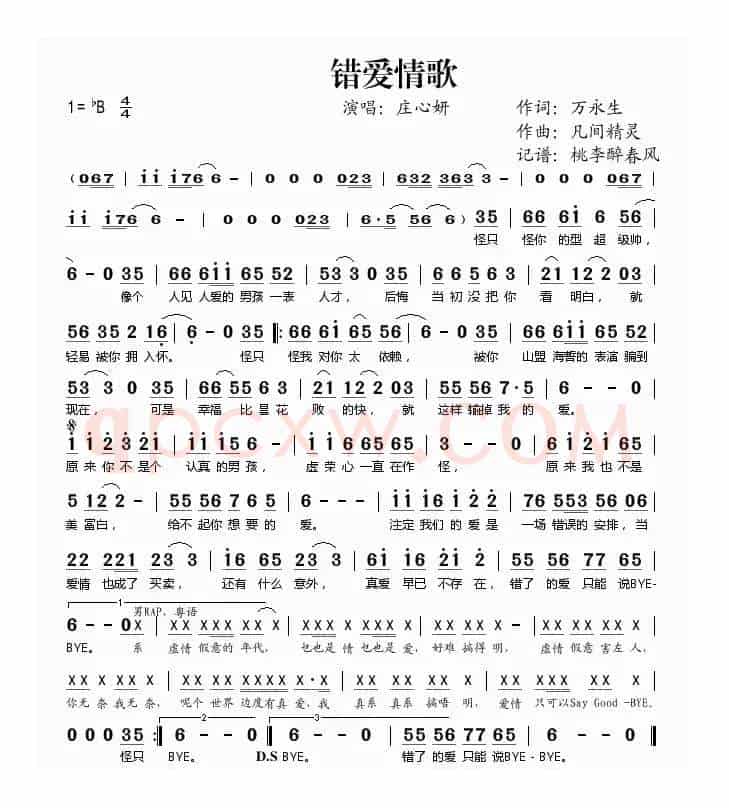 错爱情歌
1=♭B 4/4 演唱：庄心妍 作词：万永生
作曲：凡间精灵
记谱：桃李醉春风
(067 | i i i766 - | 0 0 0 023 | 632 3633 - | 0 0 0 067 |
i i i766 - | 0 0 0 023 | 6·5 56 6) 35 | 66 6i 6 56 |
怪只 怪你 的型 超 级帅，
6 - 0 35 | 66 6ii 65 52 | 53 3 0 35 | 66563 | 21 122 03 |
像个 人见 人爱的 男孩 一表 人才， 后悔 当初没把你 看 明白， 就
56 35 2 16 | 6 - 0 35 |: 66 6i 65 56 | 6 - 0 65 | 66 6ii 65 52 |
轻易 被你 拥 入怀。 怪只 怪我 对你 太 依赖， 被你 山盟 海誓的 表演 骗到
53 3 0 35 | 66 55 63 | 21 122 03 | 55 56 7·5 | 6 - - - |
现在， 可是 幸福 比昙花 败 的快， 就 这样 输掉 我的 爱。
i i2 3 2i | i i i 5 6 - | 3 3 3 2 2 3 5 | 3 - - - | 6i i2 i 65 |
原来你不是个 认真的男孩， 虚荣心一直在作 怪， 原来我也不是
5 1 2 2 - | 55 56 7 65 | 5 - - - | i i i6 i 2 2 | 76 553 56 06 |
美 富白， 给不起你想要的 爱。 注定我们的爱是 一场 错误的 安排，当
22 221 23 3 | i6 65 23 3 | 6i i6 2i 2 | 55 56 77 65 |
爱情 也成了 买卖， 还有 什么 意外， 真爱 早已 不存 在， 错了 的爱 只能 说BYE-
1
男RAP、粤语
6 - - 0X | XX XXX XX X | XXX X XXX X | XX XX X - | XX XX XX X |
BYE。 系 虚情 假意的 年代， 乜也是 情 乜也是 爱， 好难 搞得 明， 虚情 假意 害左 人，
XX XX XX X | XX XX XXX X·X | XX XX XX X | XX XXX X XX |
你无 奈 我无 奈， 呢个 世界 边度有真 爱，我 真系 真系 搞唔 明， 爱情 只可以Say Good-BYE。
2 3
0 0 0 35 :| 6 - - 0 :| 6 - - 0 | 55 56 77 65 | 6 - - - ||
怪只 BYE。 D.S BYE。 错了 的爱 只能 说BYE-BYE。
qpcxw.COM